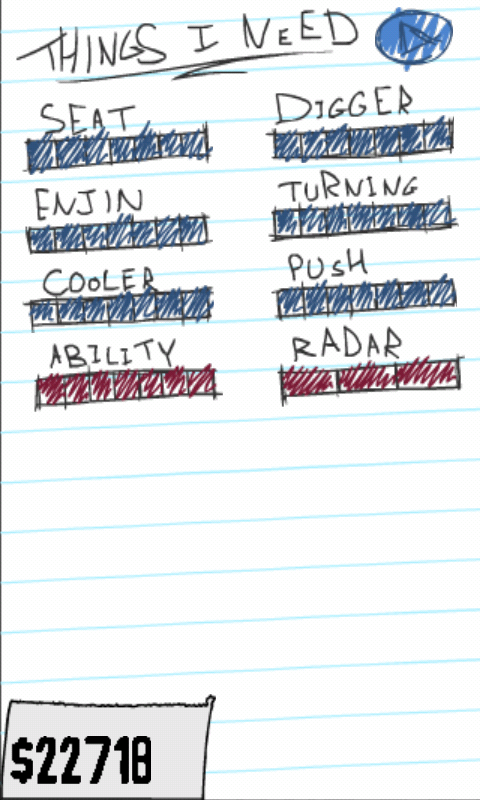 THINGS I NEED
SEAT
DIGGER
ENJIN
TURNING
COOLER
PUSH
ABILITY
RADAR
$22718